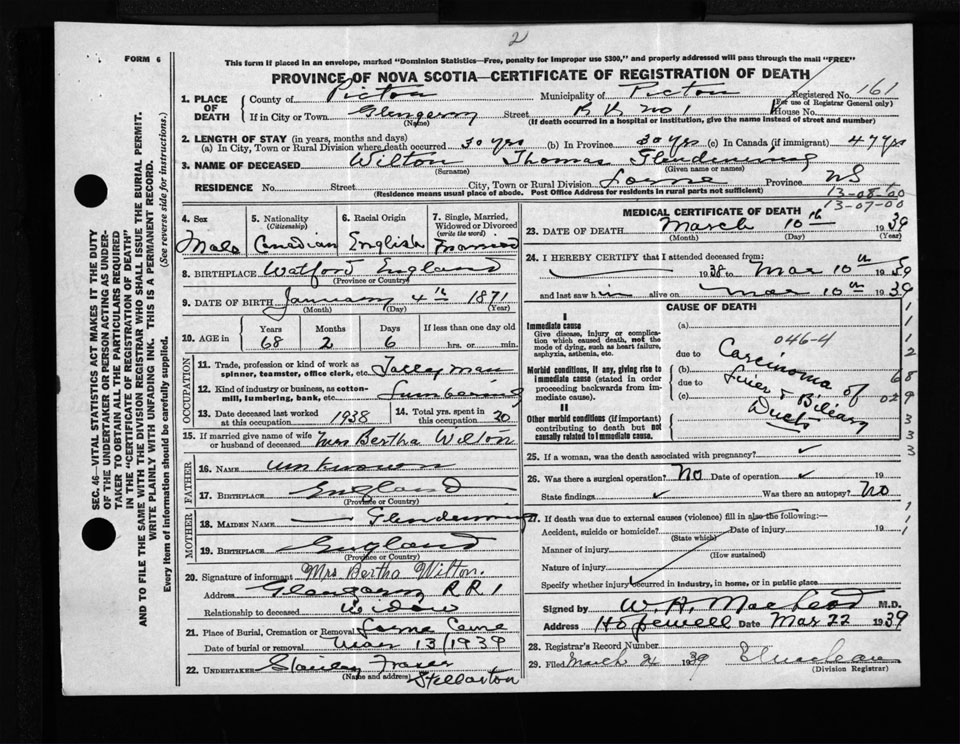 2
FORM 6
This form if placed in an envelope, marked "Dominion Statistics—Free, penalty for improper use $300," and properly addressed will pass through the mail "FREE"
PROVINCE OF NOVA SCOTIA—CERTIFICATE OF REGISTRATION OF DEATH
Registered No. 161
(For use of Registrar General only)
1. PLACE OF DEATH County of Pictou Municipality of Pictou
If in City or Town Glengarry Street R R No 1 House No.
(Name) (If death occurred in a hospital or institution, give the name instead of street and number)
2. LENGTH OF STAY (in years, months and days)
(a) In City, Town or Rural Division where death occurred 30 yrs (b) In Province 30 yrs (c) In Canada (if immigrant) 47 yrs
3. NAME OF DECEASED Wilton Thomas Glendenning
(Surname) (Given name or names)
RESIDENCE No. Street City, Town or Rural Division Lorne Province NS
(Residence means usual place of abode. Post Office Address for residents in rural parts not sufficient)
13-08-00
13-07-00
4. Sex 5. Nationality (Citizenship) 6. Racial Origin 7. Single, Married, Widowed or Divorced (write the word)
Male Canadian English Married
8. BIRTHPLACE Watford England
(Province or Country)
9. DATE OF BIRTH January 4th 1871
(Month) (Day) (Year)
10. AGE in Years Months Days If less than one day old
68 2 6 hrs. or min.
OCCUPATION
11. Trade, profession or kind of work as spinner, teamster, office clerk, etc. Talley Man
12. Kind of industry or business, as cotton-mill, lumbering, bank, etc. Lumbering
13. Date deceased last worked at this occupation 1938 14. Total yrs. spent in this occupation 20
15. If married give name of wife or husband of deceased Mrs Bertha Wilton
FATHER
16. NAME unknown
17. BIRTHPLACE England
(Province or Country)
MOTHER
18. MAIDEN NAME Glendenning
19. BIRTHPLACE England
(Province or Country)
20. Signature of informant Mrs Bertha Wilton.
Address Glengarry R.R 1
Relationship to deceased widow
21. Place of Burial, Cremation or Removal Lorne Ceme
Date of burial or removal Mar 13/1939
22. UNDERTAKER Stanley Fraser
(Name and address) Stellarton
MEDICAL CERTIFICATE OF DEATH
23. DATE OF DEATH March 10th 1939
(Month) (Day) (Year)
24. I HEREBY CERTIFY that I attended deceased from:
1938 to Mar 10th 1939
and last saw him alive on Mar 10th 1939
CAUSE OF DEATH
I
Immediate cause
Give disease, injury or complication which caused death, not the mode of dying, such as heart failure, asphyxia, asthenia, etc.
Morbid conditions, if any, giving rise to immediate cause (stated in order proceeding backwards from immediate cause).
II
Other morbid conditions (if important) contributing to death but not causally related to immediate cause.
(a)
046-4
due to
(b)
due to
(c)
Carcinoma of
Liver & Biliary
Ducts
25. If a woman, was the death associated with pregnancy?
26. Was there a surgical operation? No Date of operation 19
State findings Was there an autopsy? No
27. If death was due to external causes (violence) fill in also the following:—
Accident, suicide or homicide? Date of injury 19
(State which)
Manner of injury
(How sustained)
Nature of injury
Specify whether injury occurred in industry, in home, or in public place
Signed by W. A. MacLeod M.D.
Address Hopewell Date Mar 22 1939
28. Registrar's Record Number
29. Filed March 1939
(Division Registrar)
SEC. 46—VITAL STATISTICS ACT MAKES IT THE DUTY OF THE UNDERTAKER OR PERSON ACTING AS UNDERTAKER TO OBTAIN ALL THE PARTICULARS REQUIRED IN THE "CERTIFICATE OF REGISTRATION OF DEATH"
AND TO FILE THE SAME WITH THE DIVISION REGISTRAR WHO SHALL ISSUE THE BURIAL PERMIT.
WRITE PLAINLY WITH UNFADING INK. THIS IS A PERMANENT RECORD.
Every item of information should be carefully supplied. (See reverse side for instructions.)